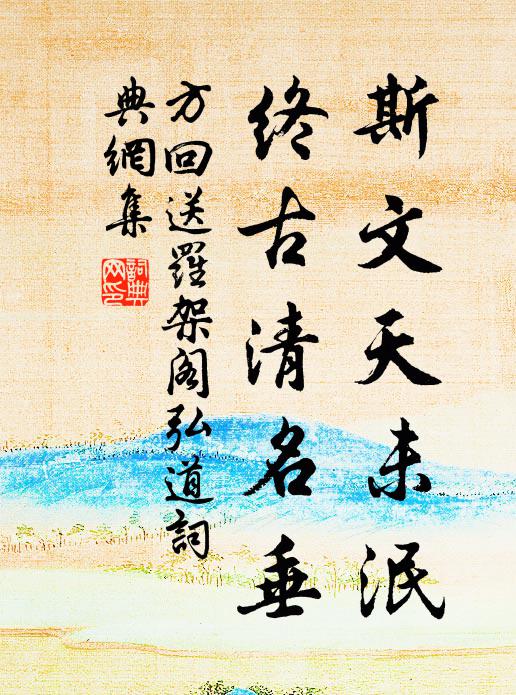 斯文天未泯
終古清名垂
方回送羅架阁弘道詞
典網集
詞典
网印